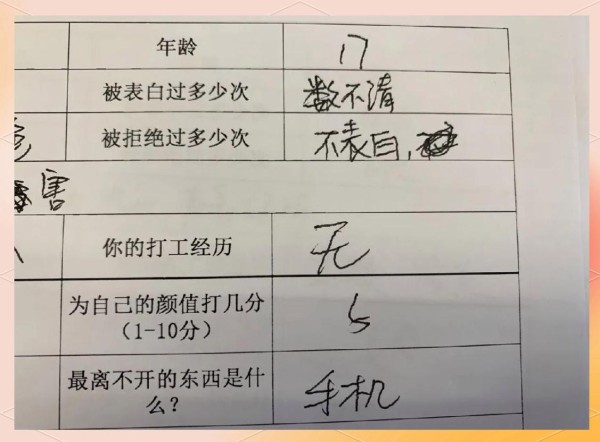 年龄 17
被表白过多少次 数不清
被拒绝过多少次 不表白,
害
你的打工经历 无
为自己的颜值打几分
(1-10分) 5
最离不开的东西是什
么? 手机